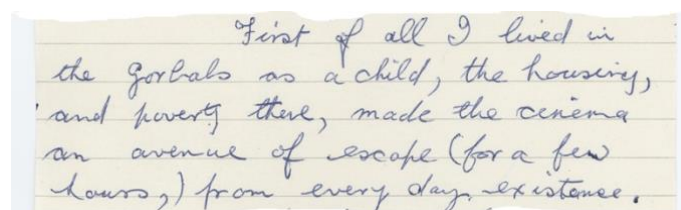 First of all I lived in
the Gorbals as a child, the housing,
and poverty there, made the cinema
an avenue of escape (for a few
hours,) from every day existence.